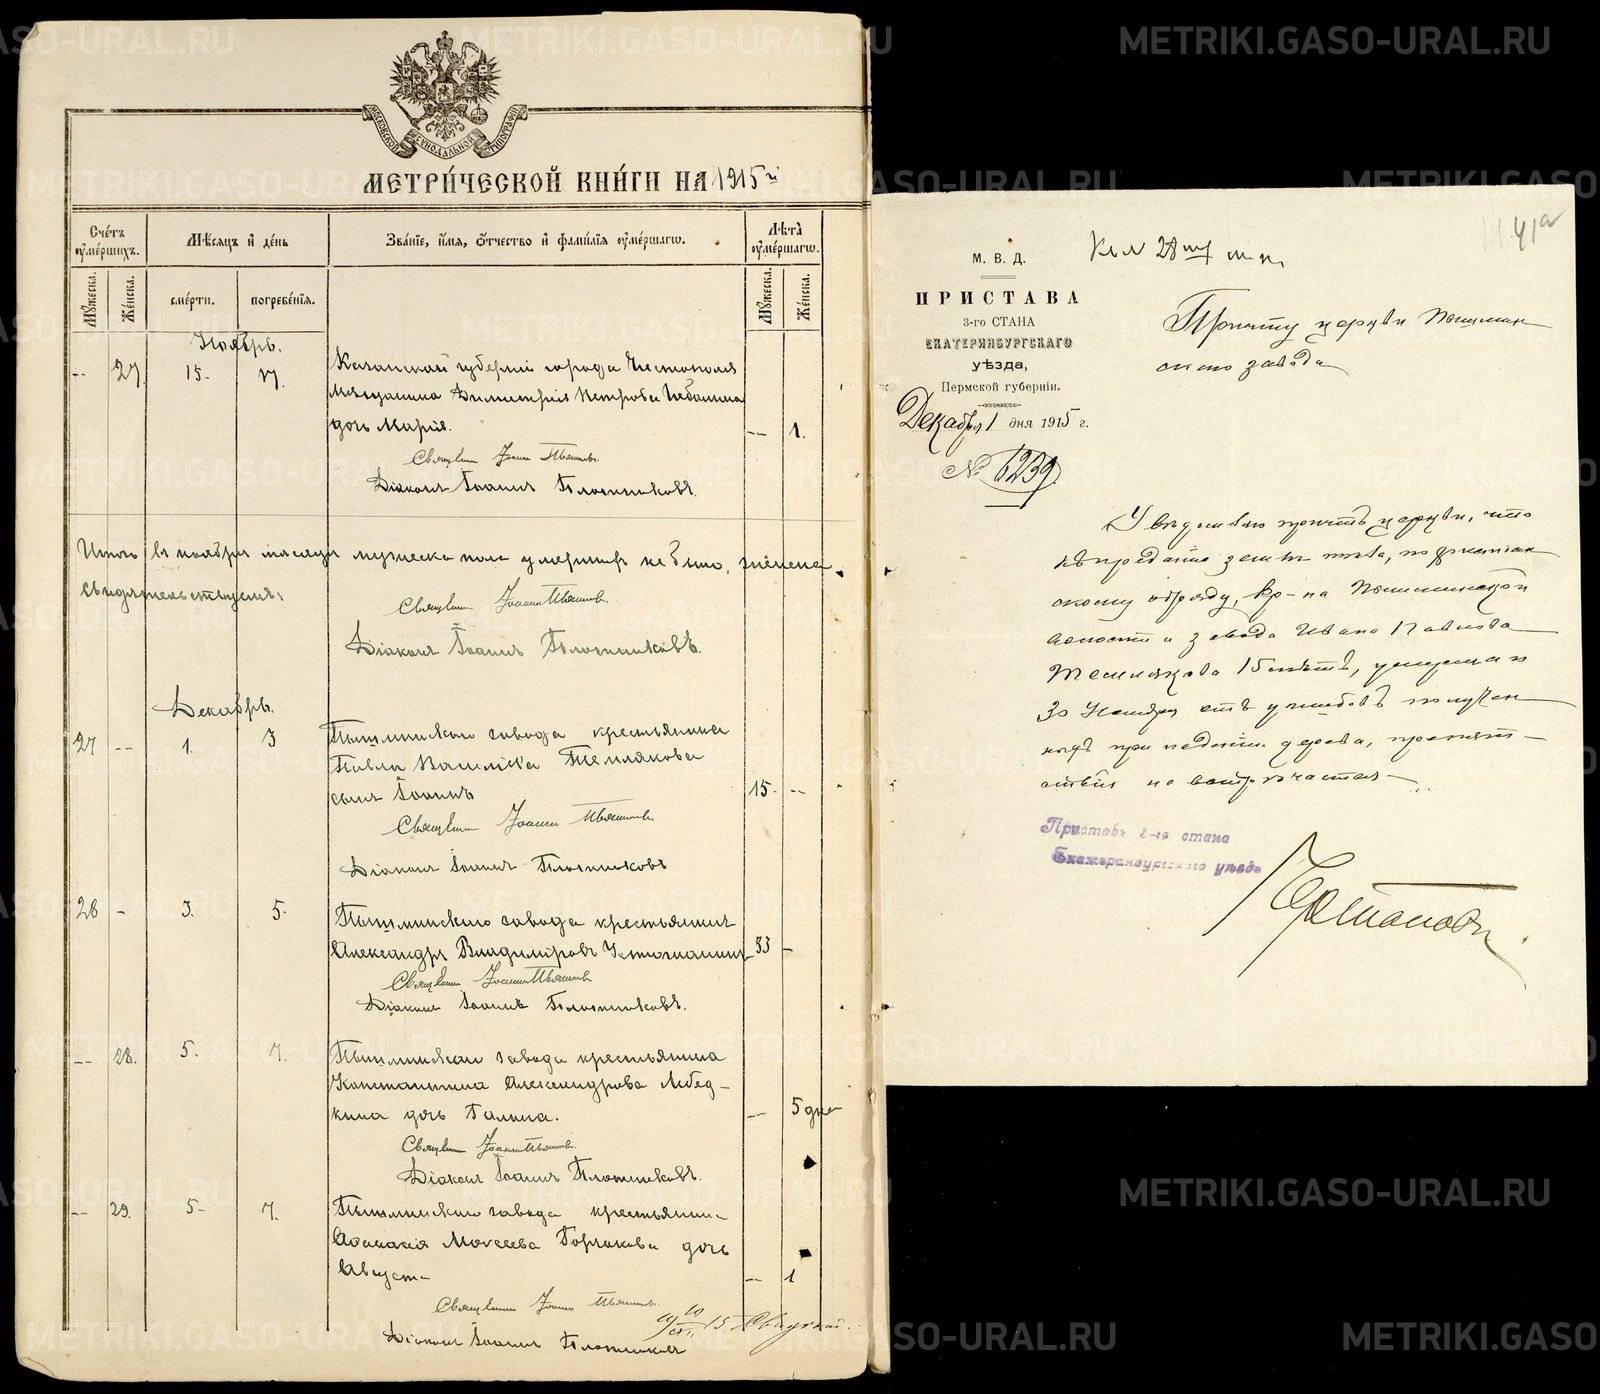 METRIKI.GASO-URAL.RU
МОСКОВСКОЙ СѴНОДАЛЬНОЙ ТИПОГРАФІИ
МЕТРИ́ЧЕСКОЙ КНИ́ГИ НА 1915й
Сче́тъ ᲂу҆ме́ршихъ.
Мѣ́сяцъ и҆ де́нь
Зва́нїе, и҆́мя, ѻ҆́тчество и҆ фами́лїя ᲂу҆ме́ршагѡ.
Лѣ́та ᲂу҆ме́ршагѡ.
Мꙋ́жеска.
Же́нска.
сме́рти.
погребе́нїя.
Мꙋ́жеска.
Же́нска.
Ноябрь.
-- 27. 15. 17. Казанской губерніи города Чистополя
мѣщанина Димитрія Петрова
дочь Марія. -- 1.
Священ Іоанн
Діаконъ Іоаннъ Плотниковъ.
Итого въ ноябрѣ мѣсяцѣ мужеска пола умершихъ не было, женска
свидѣтельствуемъ:
Священ Іоанн
Діаконъ Іоаннъ Плотниковъ.
Декабрь.
27 -- 1. 3 Пышминскаго завода крестьянина
Павла Василіева Темлякова
сынъ Іоаннъ 15. --
Священ Іоанн
Діаконъ Іоаннъ Плотниковъ
28 - 3. 5. Пышминскаго завода крестьянинъ
Александръ Владиміровъ 33 -
Священ Іоанн
Діаконъ Іоаннъ Плотниковъ.
-- 28. 5. 7. Пышминскаго завода крестьянина
Константина Александрова Лебед-
кина дочь Галина. -- 5 дне
Священ Іоанн
Діаконъ Іоаннъ Плотниковъ.
-- 29. 5- 7. Пышминскаго завода крестьянина
Аѳанасія Моисеева Горлакова дочь
Августа -- 1
Священ Іоанн
Діаконъ Іоаннъ Плотниковъ
41а
М. В. Д.
ПРИСТАВА
3-го СТАНА
ЕКАТЕРИНБУРГСКАГО
уѣзда,
Пермской губерніи.
Декабря 1 дня 1915 г.
№ 6239
Къ № 28 м. п.
Причту церкви Пышмин
скаго завода
Увѣдомляю причтъ церкви, что
къ преданію землѣ тѣла, по христіан
скому обряду, кр-на Пышминской
волости и завода Ивана Павлова
Темлякова 15 лѣтъ, умершаго
30 Ноября отъ ушибовъ получен
ныхъ при паденіи дерева, препят-
ствій не встрѣчается
Приставъ 3-го стана
Екатеринбургскаго уѣзда